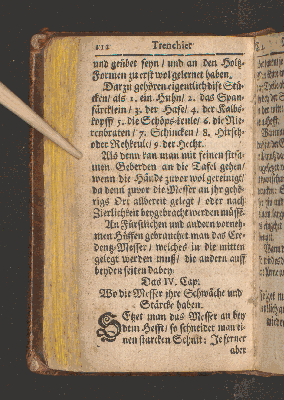 112 Trenchier
und geübet seyn / und an den Holtz-
Formen zu erst wol gelernet haben.
Darzu gehören eigentlich diese Stü-
cken / als 1. ein Huhn / 2. das Span-
färcklein / 3. der Hase / 4. der Kalbs-
kopff / 5. die Schöps-keule / 6. die Nie-
renbraten / 7. Schincken / 8. Hirsch-
oder Rehkeule / 9. der Hecht.
Als denn kan man mit feinen
Geberden an die Tafel gehen /
wenn die Hände zuvor wol gereiniget /
da denn zuvor die Messer an ihr gehö-
rigs Ort allbereit gelegt / oder nach
Zierlichkeit beygebracht werden müsse.
An Fürstlichen und andern vorneh-
men Hüffen gebrauchet man das Cre-
dentz-Messer / welches in die mitten
gelegt werden muß / die andern auff
beyden seiten dabey.
Das IV. Cap.
Wo die Messer ihre Schwäche und
Stärcke haben.
SEtzet man das Messer an bey
dem Hefft / so schneidet man ei-
nen starcken Schnitt: Je ferner
aber